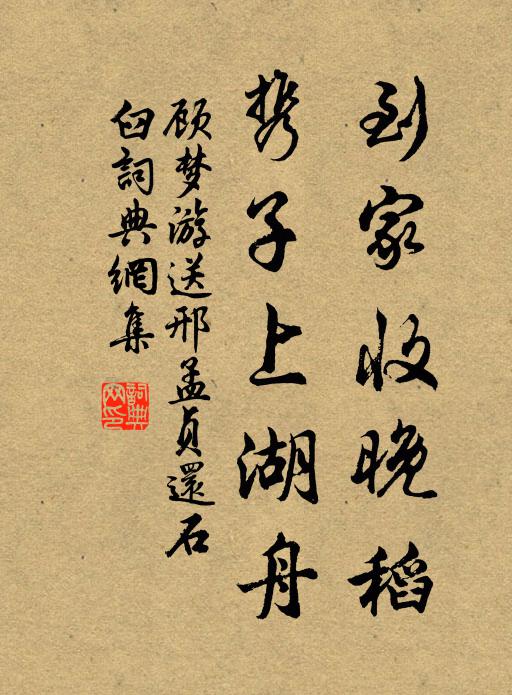 到家收晚稻
携子上湖舟
顾梦游送邢孟贞還石
臼詞典網集
詞典網印